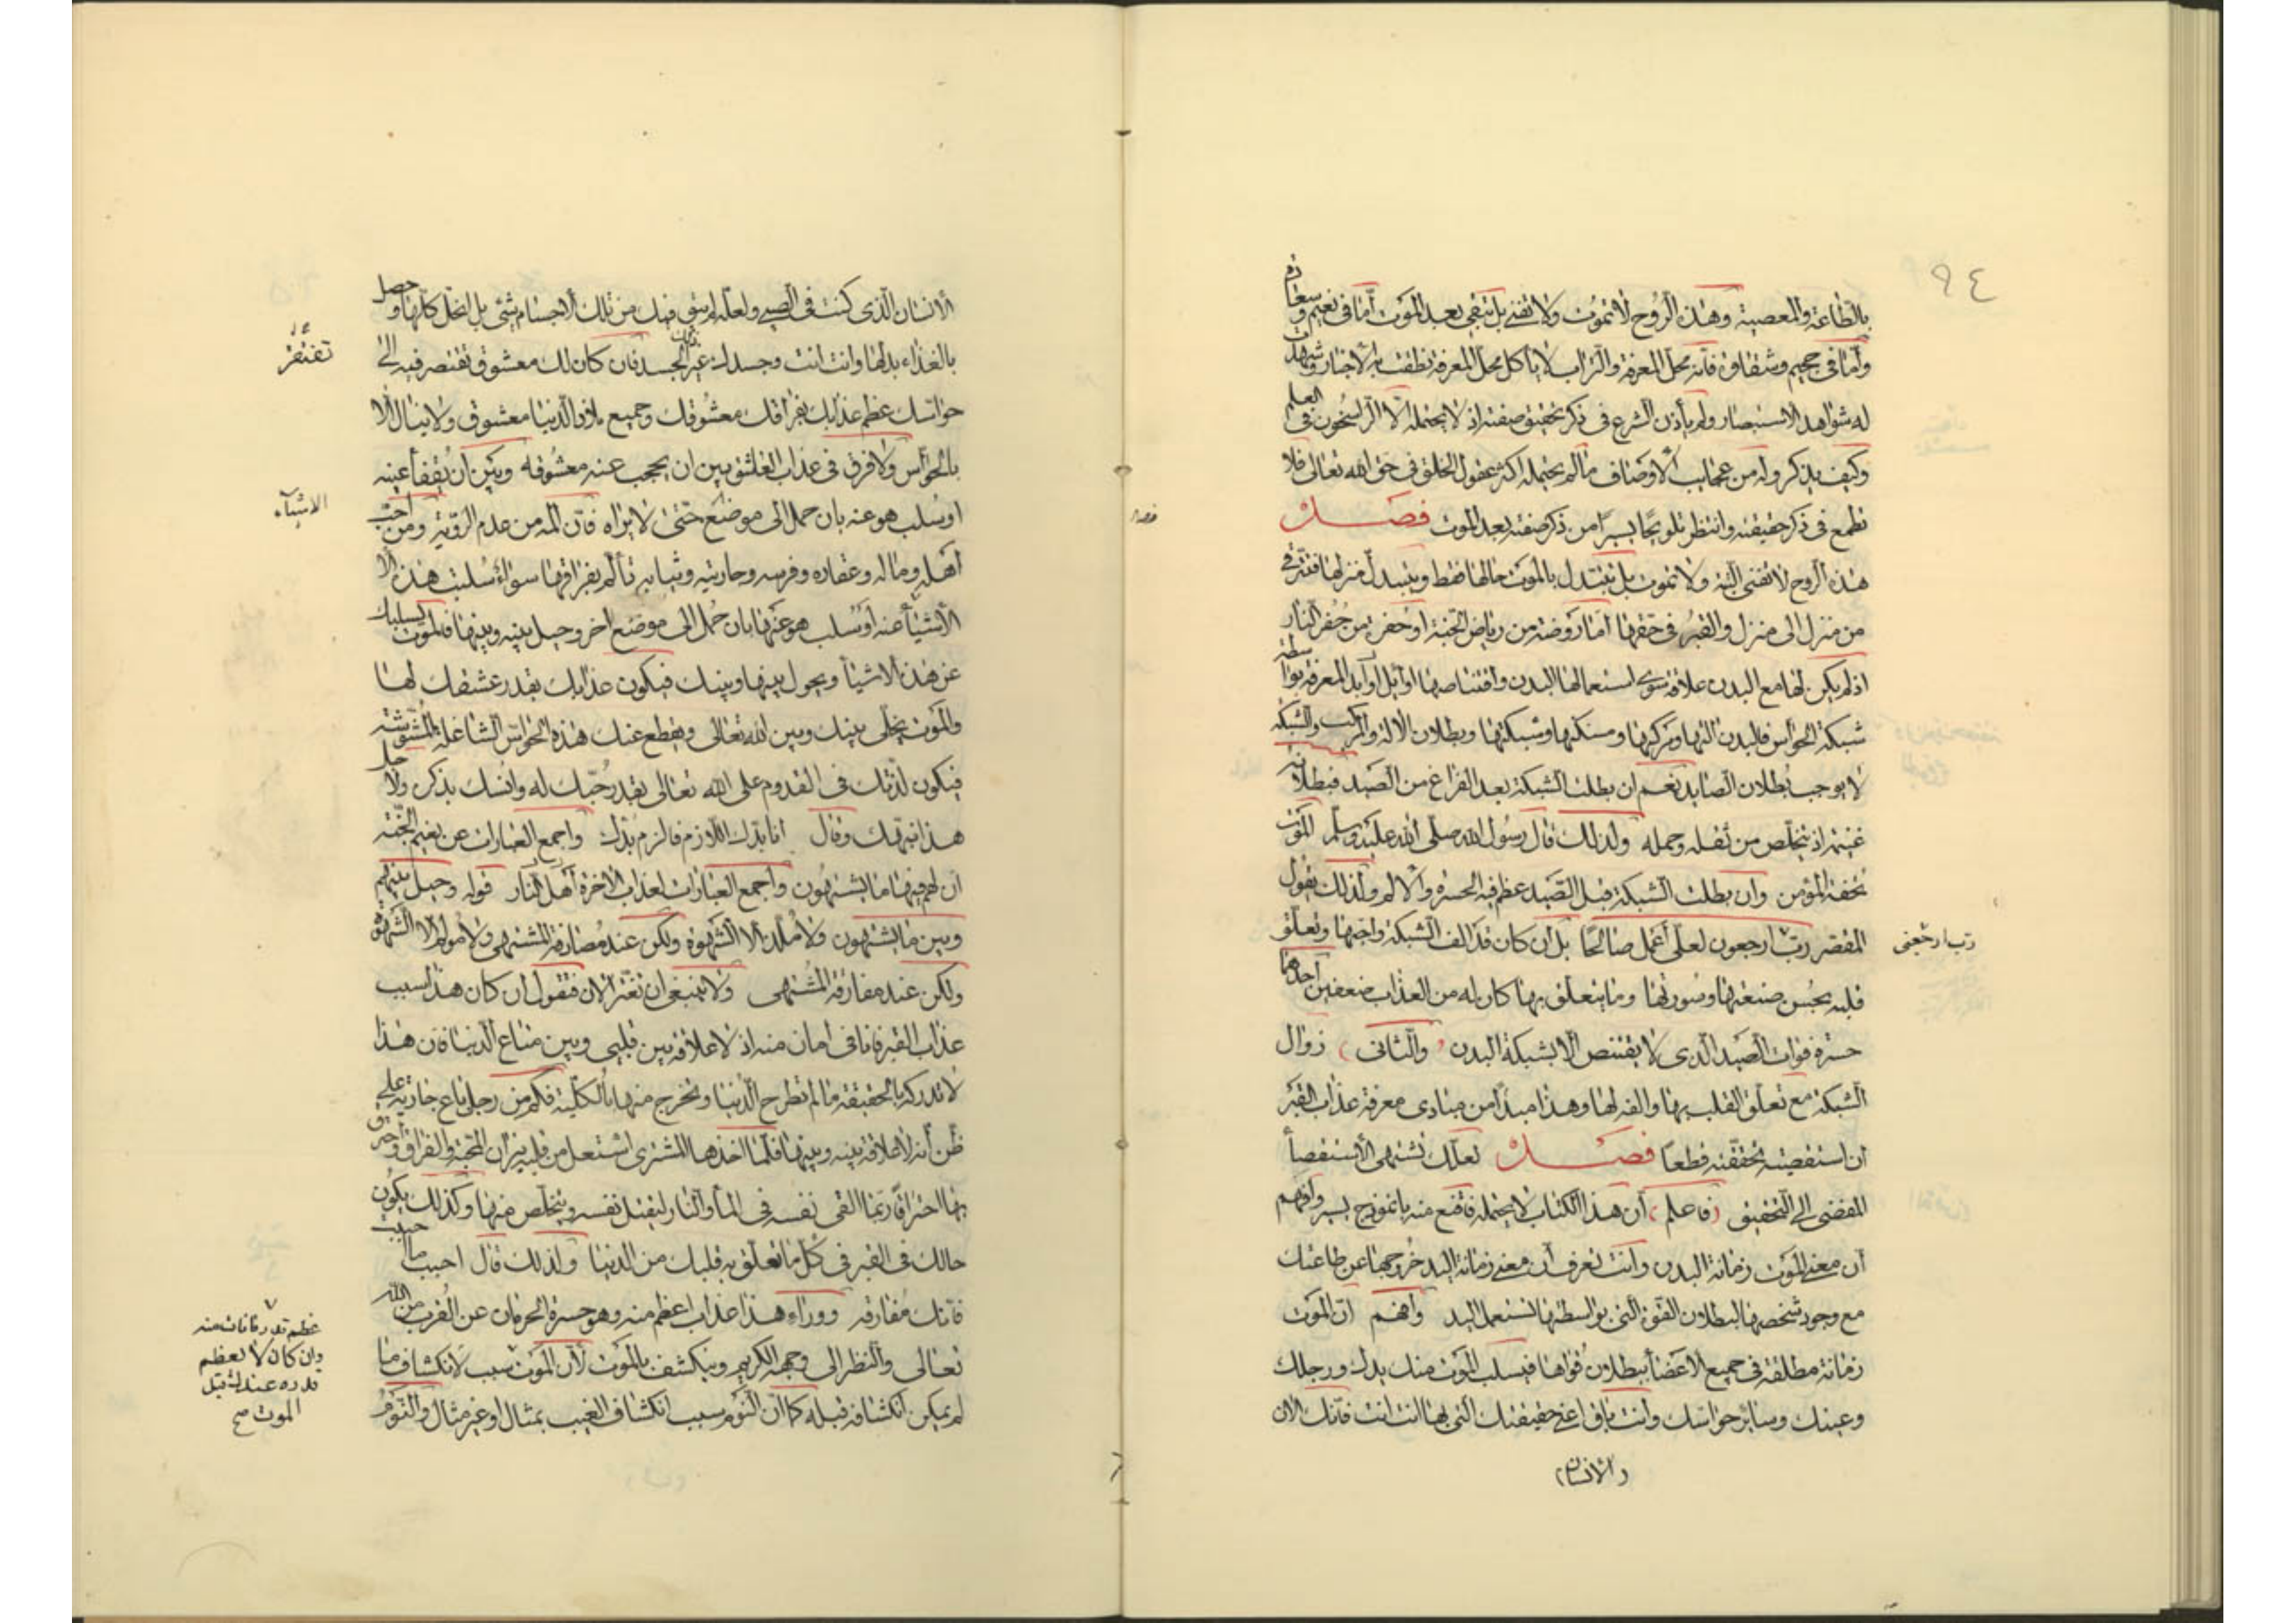 ٩٤
بالطاعة والمعصية وهذه الروح لا تموت ولا تفنى بل تبقى بعد الموت اما في نعيم وسعادة
واما في جحيم وشقاوة فانه محل المعرفة والتراب لا ياكل محل المعرفة نطقت به الاخبار وشهدت
له شواهد الاستبصار ولم يأذن الشرع في ذكر تحقيق صفته اذ لا يحتمله الا الراسخون في العلم
وكيف يذكر وله من عجايب الاوصاف ما لم يحتمله اكثر عقول الخلق في حق الله تعالى فلا
تطمع في ذكر حقيقته وانتظر تلويحًا يسيرًا من ذكر صفته بعد الموت فصل
هذه الروح لا تفنى البتة ولا تموت بل يتبدل بالموت حالها فقط ويتبدل منزلها فتترقى
من منزل الى منزل والقبر في حقها اما روضة من رياض الجنة او حفرة من حفر النار
اذ لم يكن لها مع البدن علاقة سوى استعمالها البدن واقتناصها اوائل اوابد المعرفة بواسطة
شبكة الحواس فالبدن التها ومركبها ومسكنها وشبكتها وبطلان الالة والمركب والشبكة
لا يوجب بطلان الصايد نعم ان بطلت الشبكة بعد الفراغ من الصيد فبطلانه
غنيمة اذ يتخلص من ثقله وحمله ولذلك قال رسول الله صلى الله عليه وسلم الموت
تحفة المؤمن وان بطلت الشبكة قبل الصيد عظم فيه الحسرة والالم ولذلك يقول
المقصر رب ارجعون لعلي أعمل صالحًا بل ان كان قد الف الشبكة واحبها وتعلق
رب ارجعنى
قلبه بحسن صنعتها وصورتها وما يتعلق بها كان له من العذاب ضعفين احدهما
حسرة فوات الصيد الذي لا يقتنص الا بشبكة البدن والثاني زوال
الشبكة مع تعلق القلب بها والفه لها وهذا مبدأ من مبادى معرفة عذاب القبر
ان استقصيته تحققته قطعا فصل لعلك تشتهي الاستقصأ
المفضي الى التحقيق فاعلم أن هذا الكتاب لا يحتمله فاقنع منه بانموذج يسير وافهم
أن معنى الموت زمانة البدن وأنت تعرف أن معنى زمانة اليد خروجها عن طاعتك
مع وجود شخصها لبطلان القوة التي بواسطتها تستعمل اليد وافهم ان الموت
زمانة مطلقة في جميع الاعضأ ببطلان قواها فيسلب الموت منك يدك ورجلك
وعينك وسائر حواسك وانت باق اعني حقيقتك التي بها انت انت فانك الان
الانسان
الانسان الذي كنت في الصبى ولعله لم يبق فيك من تلك الاجسام شئ بل انحل كلها وحصل
بالغذاء بدلها وانت انت وجسدك غير ذلك الجسد فان كان لك معشوق تفتقر فيه الى
تفتقر
حواسك عظم عذابك بفراقك معشوقك وجميع ملاذ الدنيا معشوق ولا ينال الا
بالحواس ولا فرق في عذاب العاشق بين ان يحجب عنه معشوقه وبين ان يفقأ عينه
او سلب هو عنه بان حمل الى موضع حتى لا يراه فان المه من عدم الرؤية ومن احب
الاشيآء
اهله وماله وعقاره وفرسه وجاريته وثيابه تألم بفراقها سواء سلبت هذه الا
الأشيأ عنه او سلب هو عنها بان حمل الى موضع اخر وحيل بينه وبينها فالموت يسلبك
عن هذه الاشيأ ويحول بينها وبينك فيكون عذابك بقدر عشقك لها
والموت يخلي بينك وبين الله تعالى ويقطع عنك هذه الحواس الشاغلة المشوشة
فيكون لذتك في القدوم على الله تعالى بقدر حبك له وانسك بذكره ولاجل
هذا نبهك وقال انا بدك اللازم فالزم بدك واجمع العبارات عن نعيم الجنة
ان لهم فيها ما يشتهون وأجمع العبارات لعذاب الاخرة أهل النار قوله وحيل بينهم
وبين ما يشتهون ولا ملذ الا الشهوة ولكن عند مصادفة المشتهى ولا مولم الا الشهوة
ولكن عند مفارقة المشتهى ولا ينبغي ان تغتر الان فتقول ان كان هذا سبب
عذاب القبر فانا في امان منه اذ لا علاقة بين قلبي وبين متاع الدنيا فان هذا
لا تدركه بالحقيقة ما لم تطرح الدنيا وتخرج منها بالكلية فكم من رجل باع جارية على
ظن أنه لا علاقة بينه وبينها فلما اخذها المشتري اشتعل من قلبه نيران المحبة والفراق واحترق
بها احتراقًا ربما القى نفسه في المأ والنار ليقتل نفسه ويتخلص منها وكذلك يكون
حالك في القبر في كل ما تعلق به قلبك من الدنيا ولذلك قال احبب ما احببت
فانك مفارقه ووراء هذا عذاب اعظم منه وهو حسرة الحرمان عن القرب من الله
تعالى والنظر الى وجهه الكريم وينكشف بالموت لأن الموت سبب لانكشاف ما
عظم قدر ما فات منه
وان كان لا يعظم
قدره عندك قبل
الموت صح
لم يمكن انكشافه قبله كما ان النوم سبب انكشاف الغيب بمثال او غير مثال والنوم